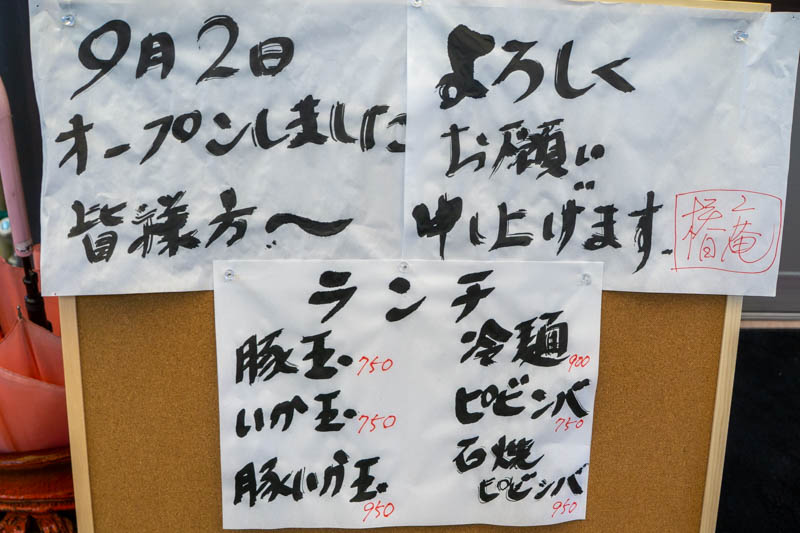 9月2日
オープンしました
皆様方〜
よろしく
お願い
申し上げます
椿庵
ランチ
豚玉 750
いか玉 750
豚いか玉 950
冷麺 900
ピビンバ 750
石焼
ピビンバ 950